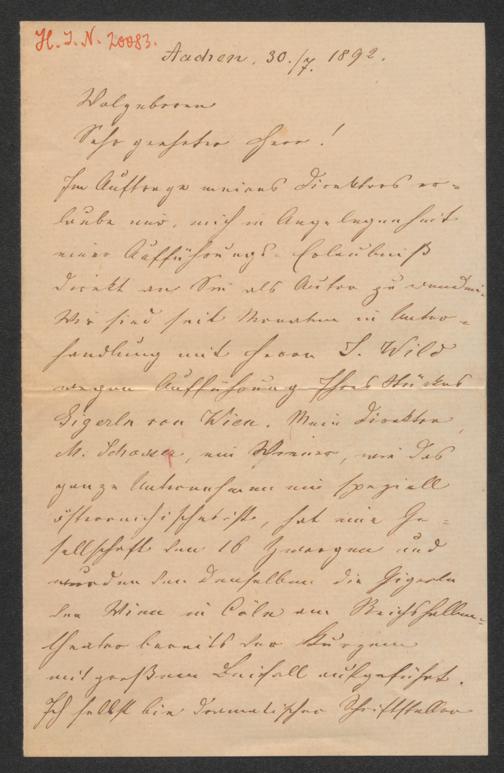 H. I. N. 20083.
Aachen, 30./7. 1892.
Wolgeboren
Sehr geehrter Herr!
Im Auftrage meines Direktors er-
laube mir, mich in Angelegenheit
einer Aufführungs-Erlaubniß
direkt an Sie als Autor zu wenden.
Wir sind seit Monaten in Unter-
handlung mit Herrn I. Wild
wegen Aufführung Ihres Stückes
Gigerln von Wien. Mein Direktor,
M. Schosser, ein Wiener, wie das
ganze Unternehmen ein speziell
österreichisches ist, hat eine Ge-
sellschaft von 16 Zwergen und
wurden von denselben die Gigerln
von Wien in Cöln am Reichshallen-
theater bereits vor Kurzem
mit großem Beifall aufgeführt.
Ich selbst bin dramatischer Schriftsteller